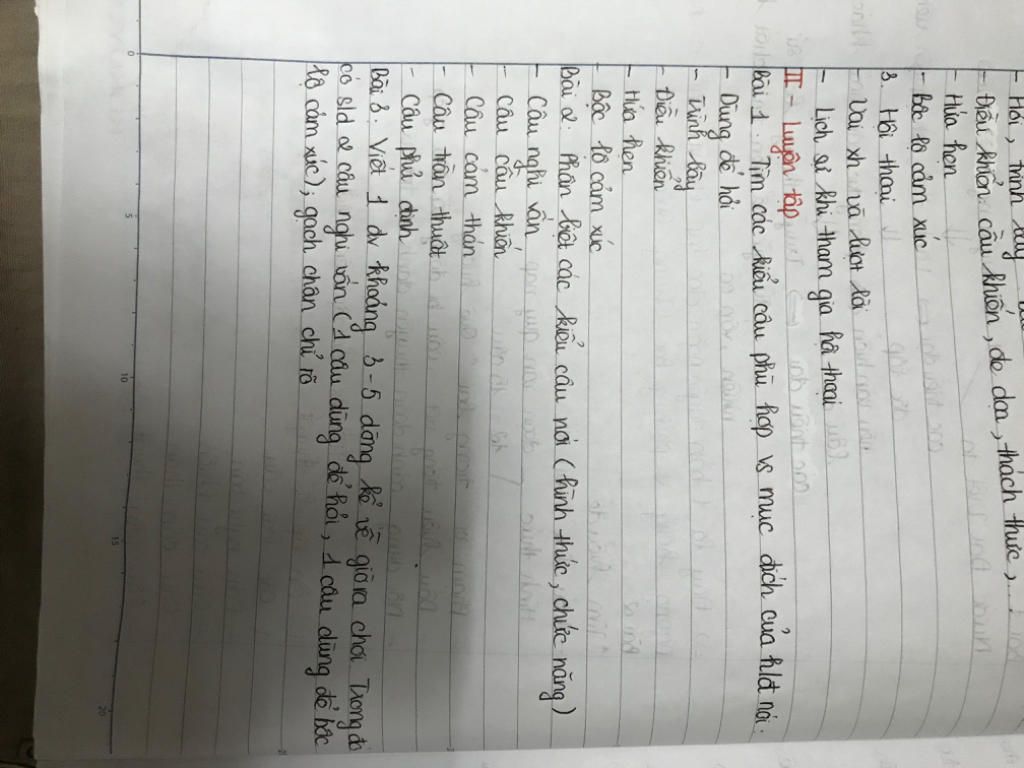 - Hỏi, trình bày
- Điều khiển, cầu khiến, đe dạ, thách thức,...
- Hứa hẹn
- Bộc lộ cảm xúc
3. Hội thoại
- Vai xh và lượt lời
- Lịch sự khi tham gia hội thoại
II - Luyện tập
Bài 1. Tìm các kiểu câu phù hợp vs mục đích của hđ nói.
- Dùng để hỏi
- Trình bày
- Điều khiển
- Hứa hẹn
- Bộc lộ cảm xúc
Bài 2. Phân biệt các kiểu câu nói (hình thức, chức năng)
- Câu nghi vấn
- Câu cầu khiến
- Câu cảm thán
- Câu trần thuật
- Câu phủ định
Bài 3. Viết 1 đv khoảng 3-5 dòng kể về giờ ra chơi. Trong đó
có sld 2 câu nghi vấn (1 câu dùng để hỏi, 1 câu dùng để bộc
lộ cảm xúc), gạch chân chỉ rõ
0
5
10
15
20